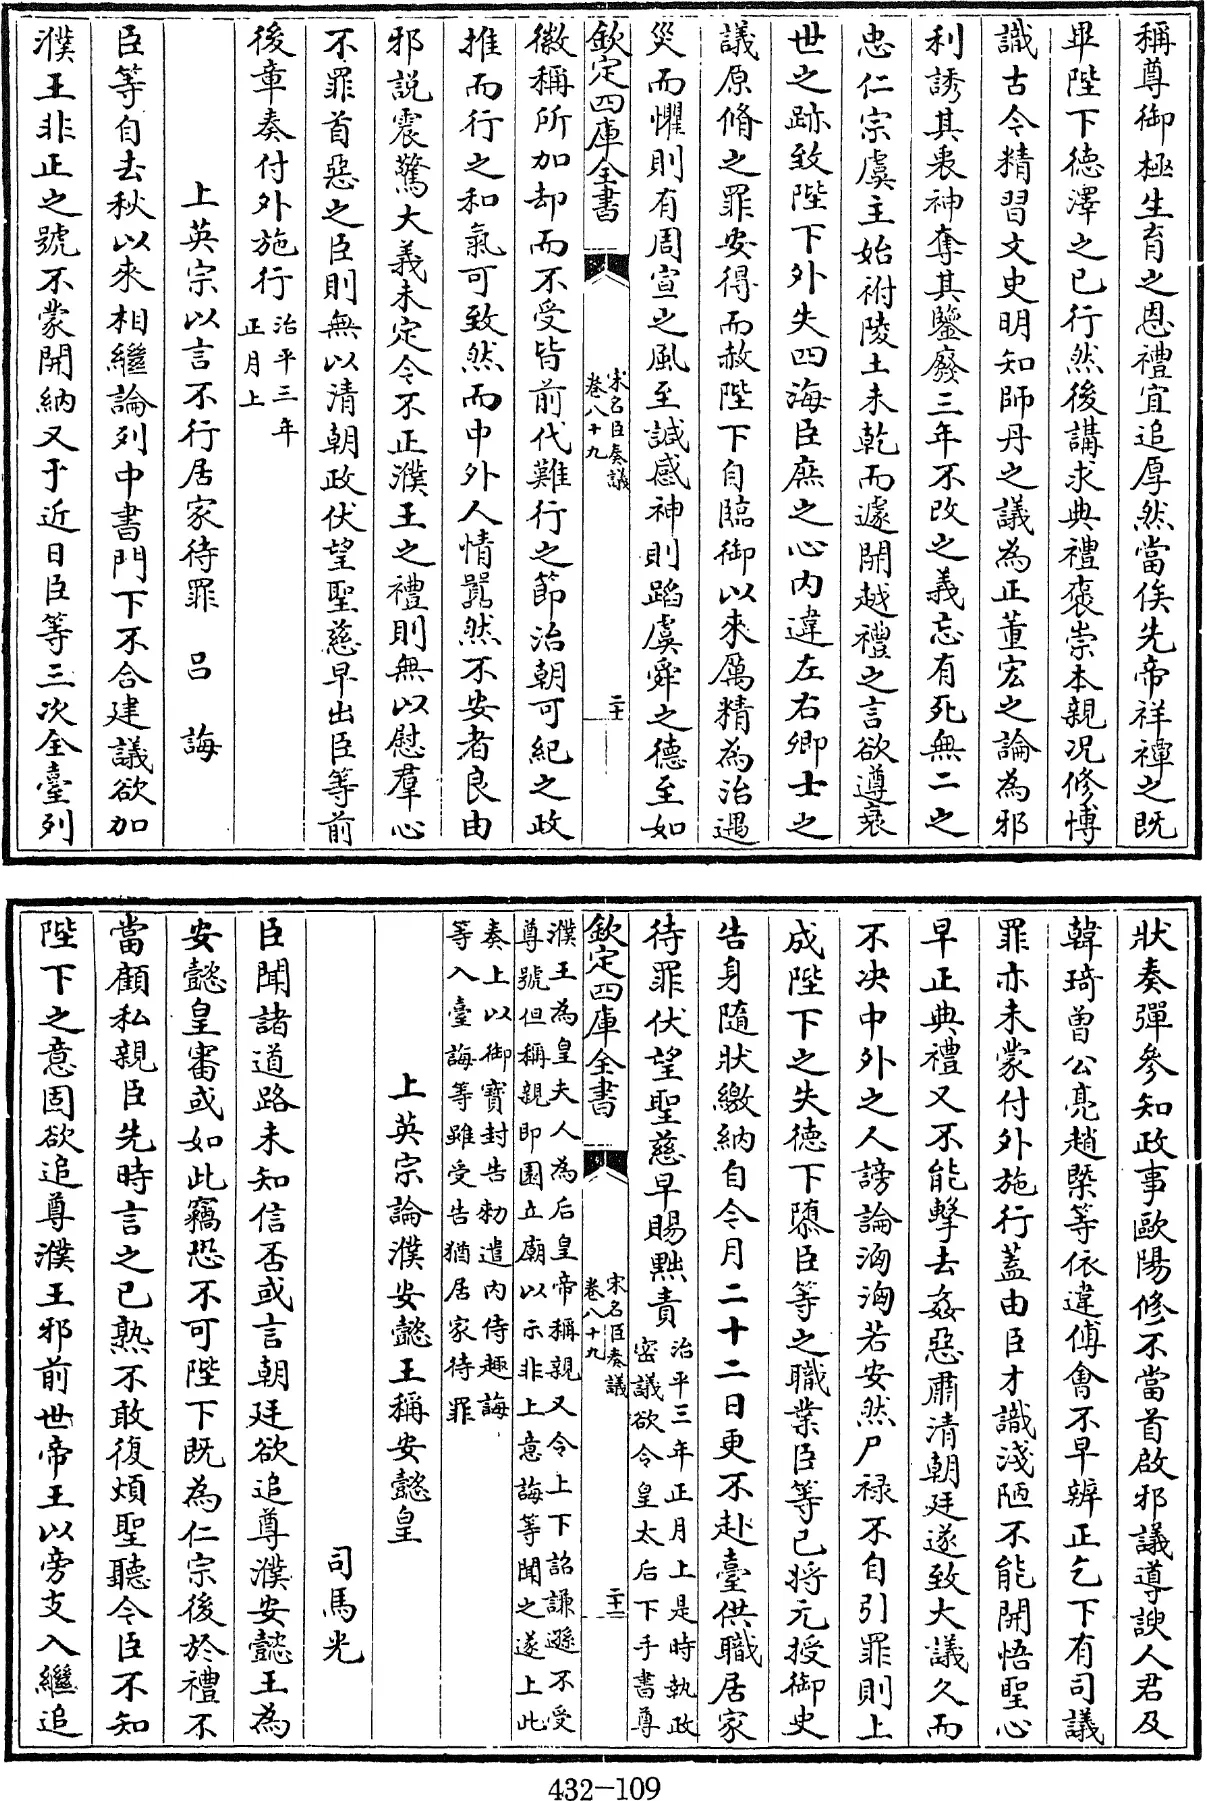 稱尊御極生育之恩禮宜追厚然當俟先帝祥禫之既
畢陛下德澤之已行然後講求典禮褒崇本親况修博
識古今精習文史明知師丹之議為正董宏之論為邪
利誘其衷神奪其鑒廢三年不改之義忘有死無二之
忠仁宗虞主始祔陵土未乾而遽開越禮之言欲遵衰
世之跡致陛下外失四海臣庶之心内違左右卿士之
議原脩之罪安得而赦陛下自臨御以來厲精為治遇
災而懼則有周宣之風至諴感神則蹈虞舜之德至如
欽定四庫全書
宋名臣奏議
卷八十九
二十
徽稱所加却而不受皆前代難行之節治朝可紀之政
推而行之和氣可致然而中外人情嚣然不安者良由
邪説震驚大義未定令不正濮王之禮則無以慰羣心
不罪首惡之臣則無以清朝政伏望聖慈早出臣等前
後章奏付外施行治平三年
正月上
上英宗以言不行居家待罪 呂誨
臣等自去秋以來相繼論列中書門下不合建議欲加
濮王非正之號不蒙開納又于近日臣等三次全臺列
狀奏彈參知政事歐陽修不當首啟邪議導諛人君及
韓琦曾公亮趙槩等依違傅會不早辨正乞下有司議
罪亦未蒙付外施行蓋由臣才識淺陋不能開悟聖心
早正典禮又不能擊去姦惡肅清朝廷遂致大議久而
不决中外之人謗論洶洶若安然尸禄不自引罪則上
成陛下之失德下隳臣等之職業臣等已將元授御史
告身隨狀繳納自今月二十二日更不赴臺供職居家
待罪伏望聖慈早賜黜責治平三年正月上是時執政
密議欲令皇太后下手書尊
欽定四庫全書
宋名臣奏議
卷八十九
二十一
濮王為皇夫人為后皇帝稱親又令上下詔謙遜不受
尊號但稱親即園立廟以示非上意誨等聞之遂上此
奏上以御寳封告勑遣内侍趣誨
等入臺誨等雖受告猶居家待罪
上英宗論濮安懿王稱安懿皇
司馬光
臣聞諸道路未知信否或言朝廷欲追尊濮安懿王為
安懿皇審或如此竊恐不可陛下既為仁宗後於禮不
當顧私親臣先時言之已熟不敢復煩聖聽今臣不知
陛下之意固欲追尊濮王邪前世帝王以旁支入繼追
432-109